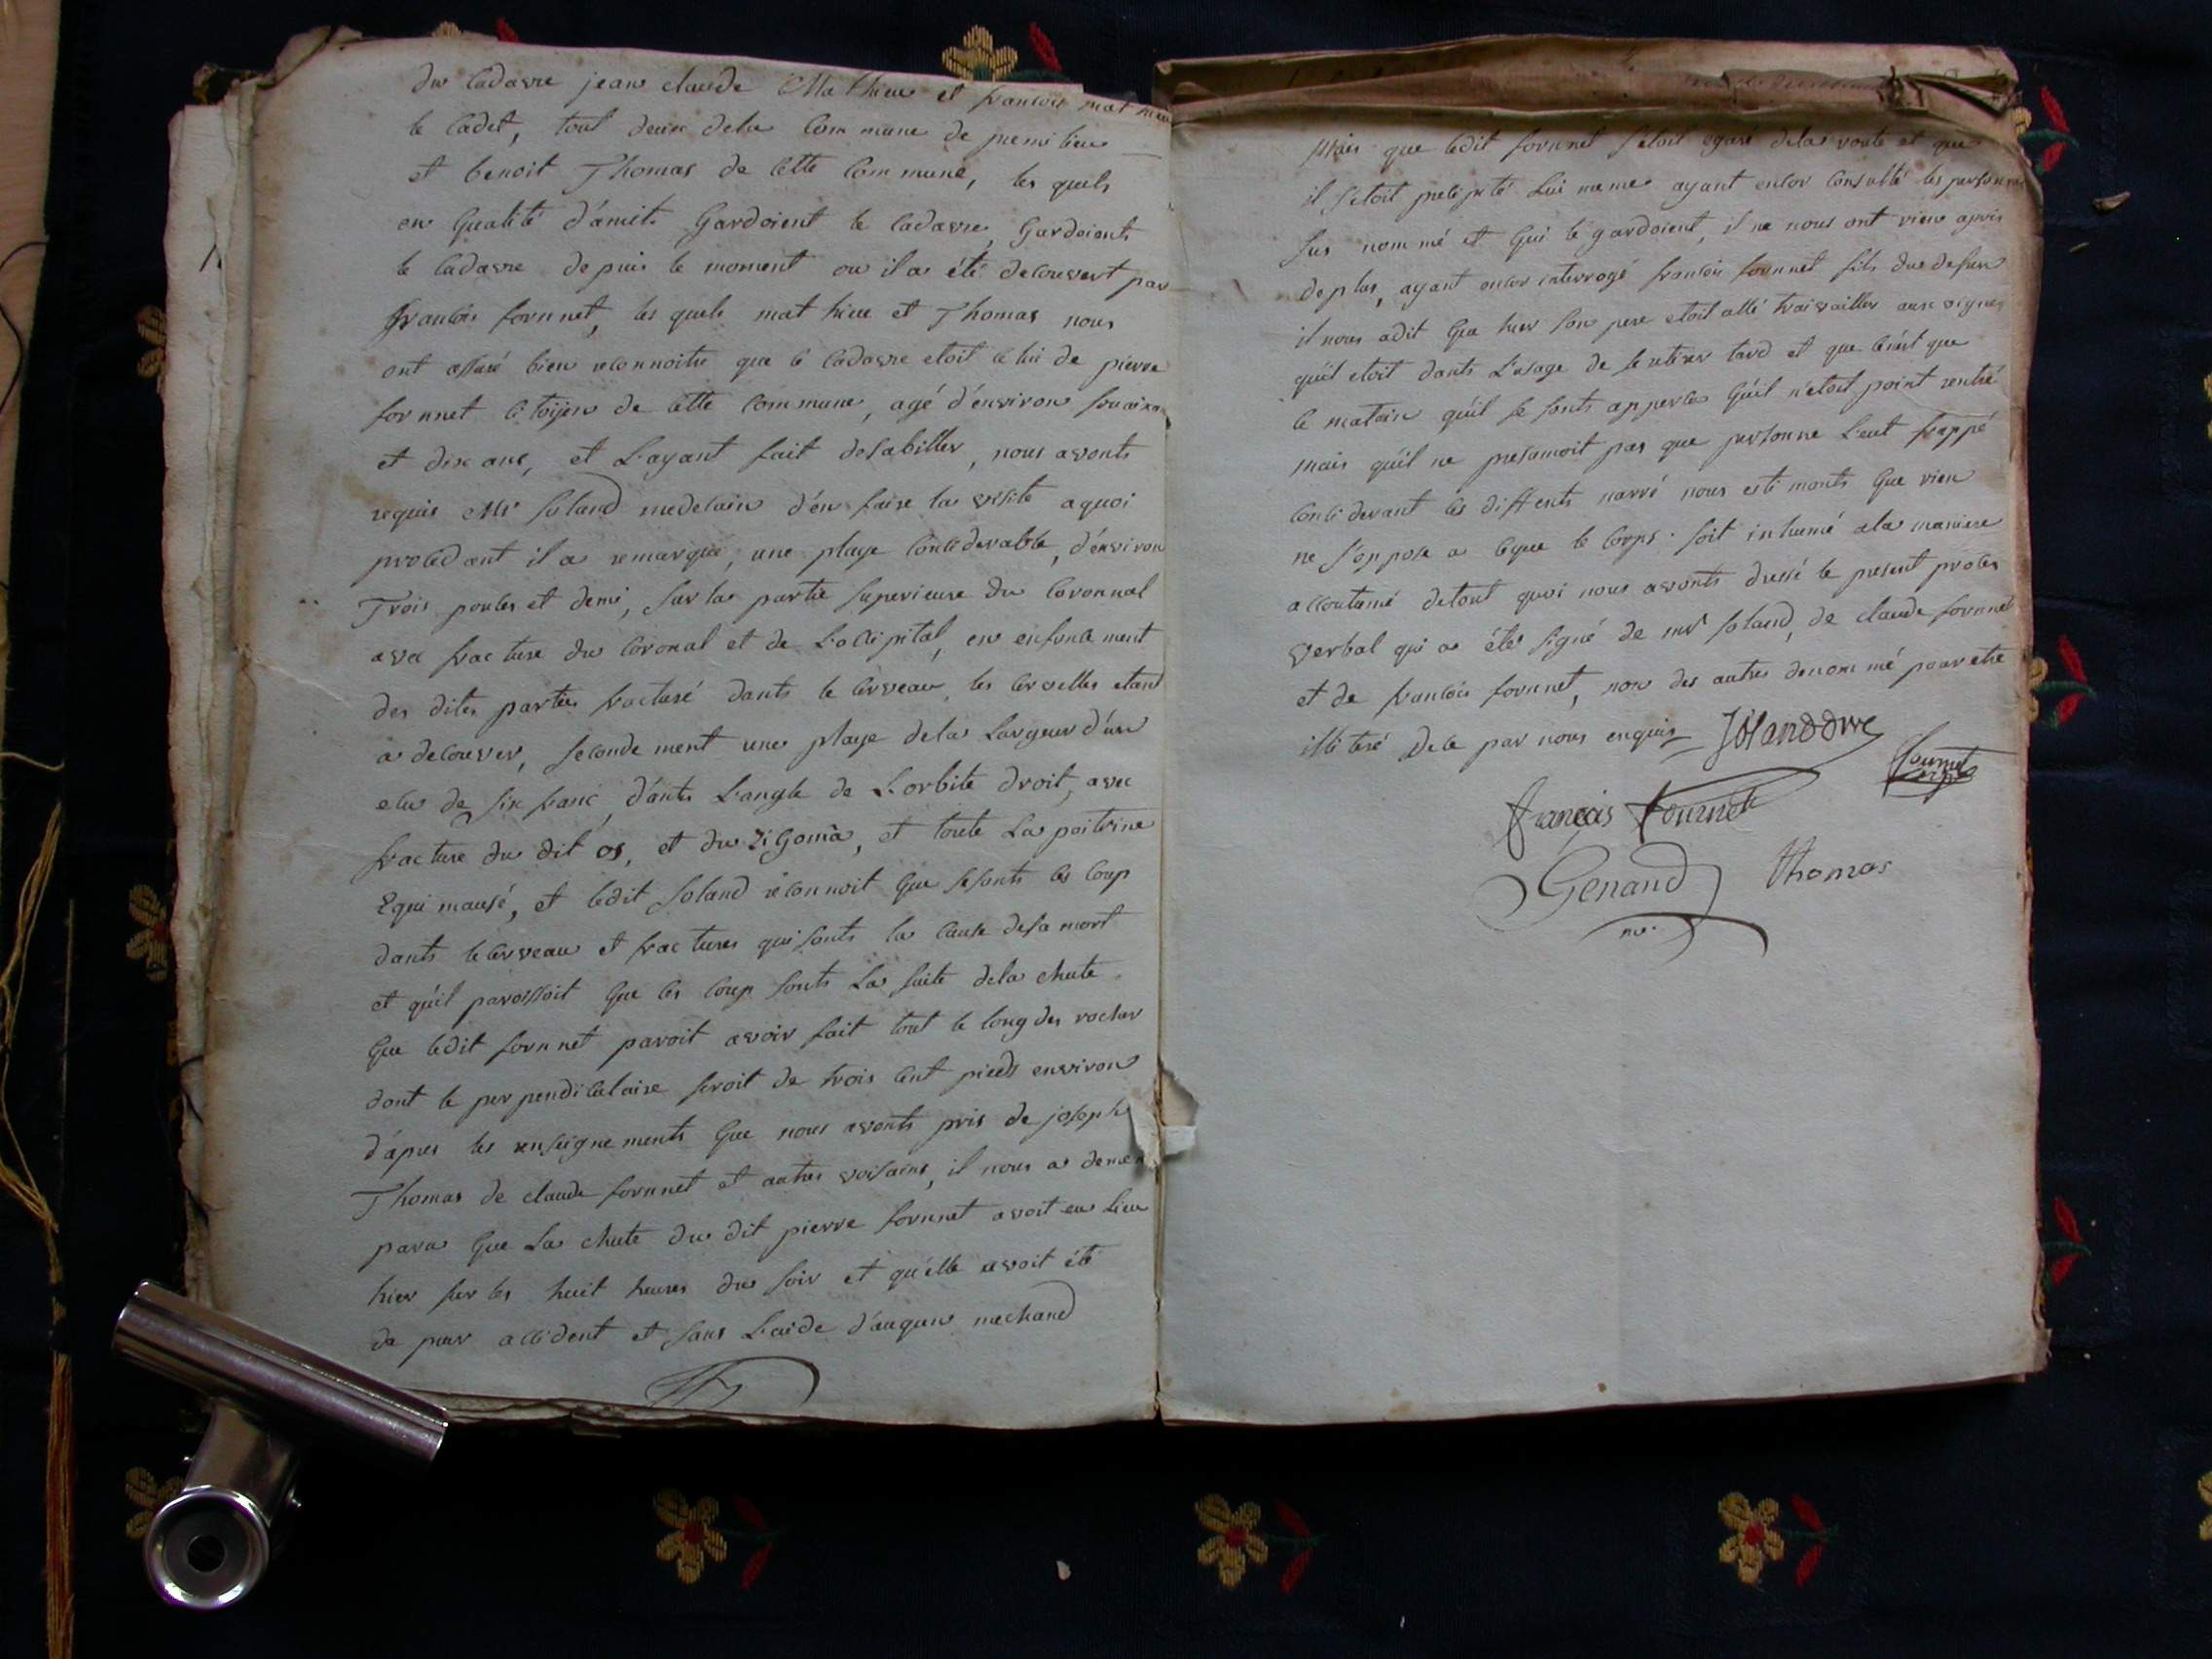 du cadavre jean claude Mathieu et francois mathieu
le cadet, tout deux dela commune de premilieu
et benoit Thomas de cette commune, les quels
en qualité d'amits gardoient le cadavre, gardoients
le cadavre depuis le moment ou il a été decouvert par
francois fornnet, les quels mathieu et Thomas nous
ont assuré bien reconnoitre que ce cadavre etoit celui de pierre
fornnet citoijen de cette commune, agé d'environ soixante
et dix ans, et L'ayant fait desabiller, nous avonts
requis Mr soland medecain d'en faire la visite aquoi
procedant il a remarqué, une playe considerable, d'environ
Trois pouces et demi, sur la partie superieure du coronnal
avec fracture du coronal et de L'occipital, en enfoncement
des dites parties fracturé dants le cerveau, les cervelles etant
a decouver, secondement une playe dela Largeur d'un
ecu de six franc, d'ants L'angle de L'orbite droit, avec
fracture du dit os, et du zigoma, et toute La poitrine
Equimausé, et ledit soland reconnoit que se sonts les coup
dants le cerveau et fractures qui sonts la cause desa mort
et qu'il paroissoit que les coup sonts La suite dela chute
que ledit fornnet paroit avoir fait tout le long des rocher
dont le perpendiculaire seroit de trois cent pieds environ
d'apres les renseignements que nous avonts pris de joseph
Thomas de claude fornnet et autres voisains, il nous a demeu
paru que La chute du dit pierre fornnet avoit eu Lieu
hier sur les huit heures du soir et qu'elle avoit été
de pur accident et sans L'aide d'auqun mechand
mais que ledit fornnet s'étoit egaré dela route et que
il s'etoit precipité Lui meme ayant encor consulté les personnes
sus nommé et qui le gardoient, il ne nous ont rien apris
deplus, ayant encor interrogé francois fornnet fils du defun
il nous adit que hier son pere etoit allé travailler aux vignes
qu'il etoit dants L'usage de se retirer tard et que ce n'est que
le matain qu'il se sonts apperçu qu'il n'etoit point rentré
mais qu'il ne presumoit pas que personne L'eut frappé
considerant les diffents narré nous estimonts que rien
ne s'oppose a ceque le corps soit inhumé ala maniere
accoutumé detout quoi nous avonts dressé le present proces
verbal qui a été signé de mr soland, de claude fornnet
et de francois fornnet, non des autres denommé pour etre
illiteré dece par nous enquis
fournet
françois fournet
Genand Thomas